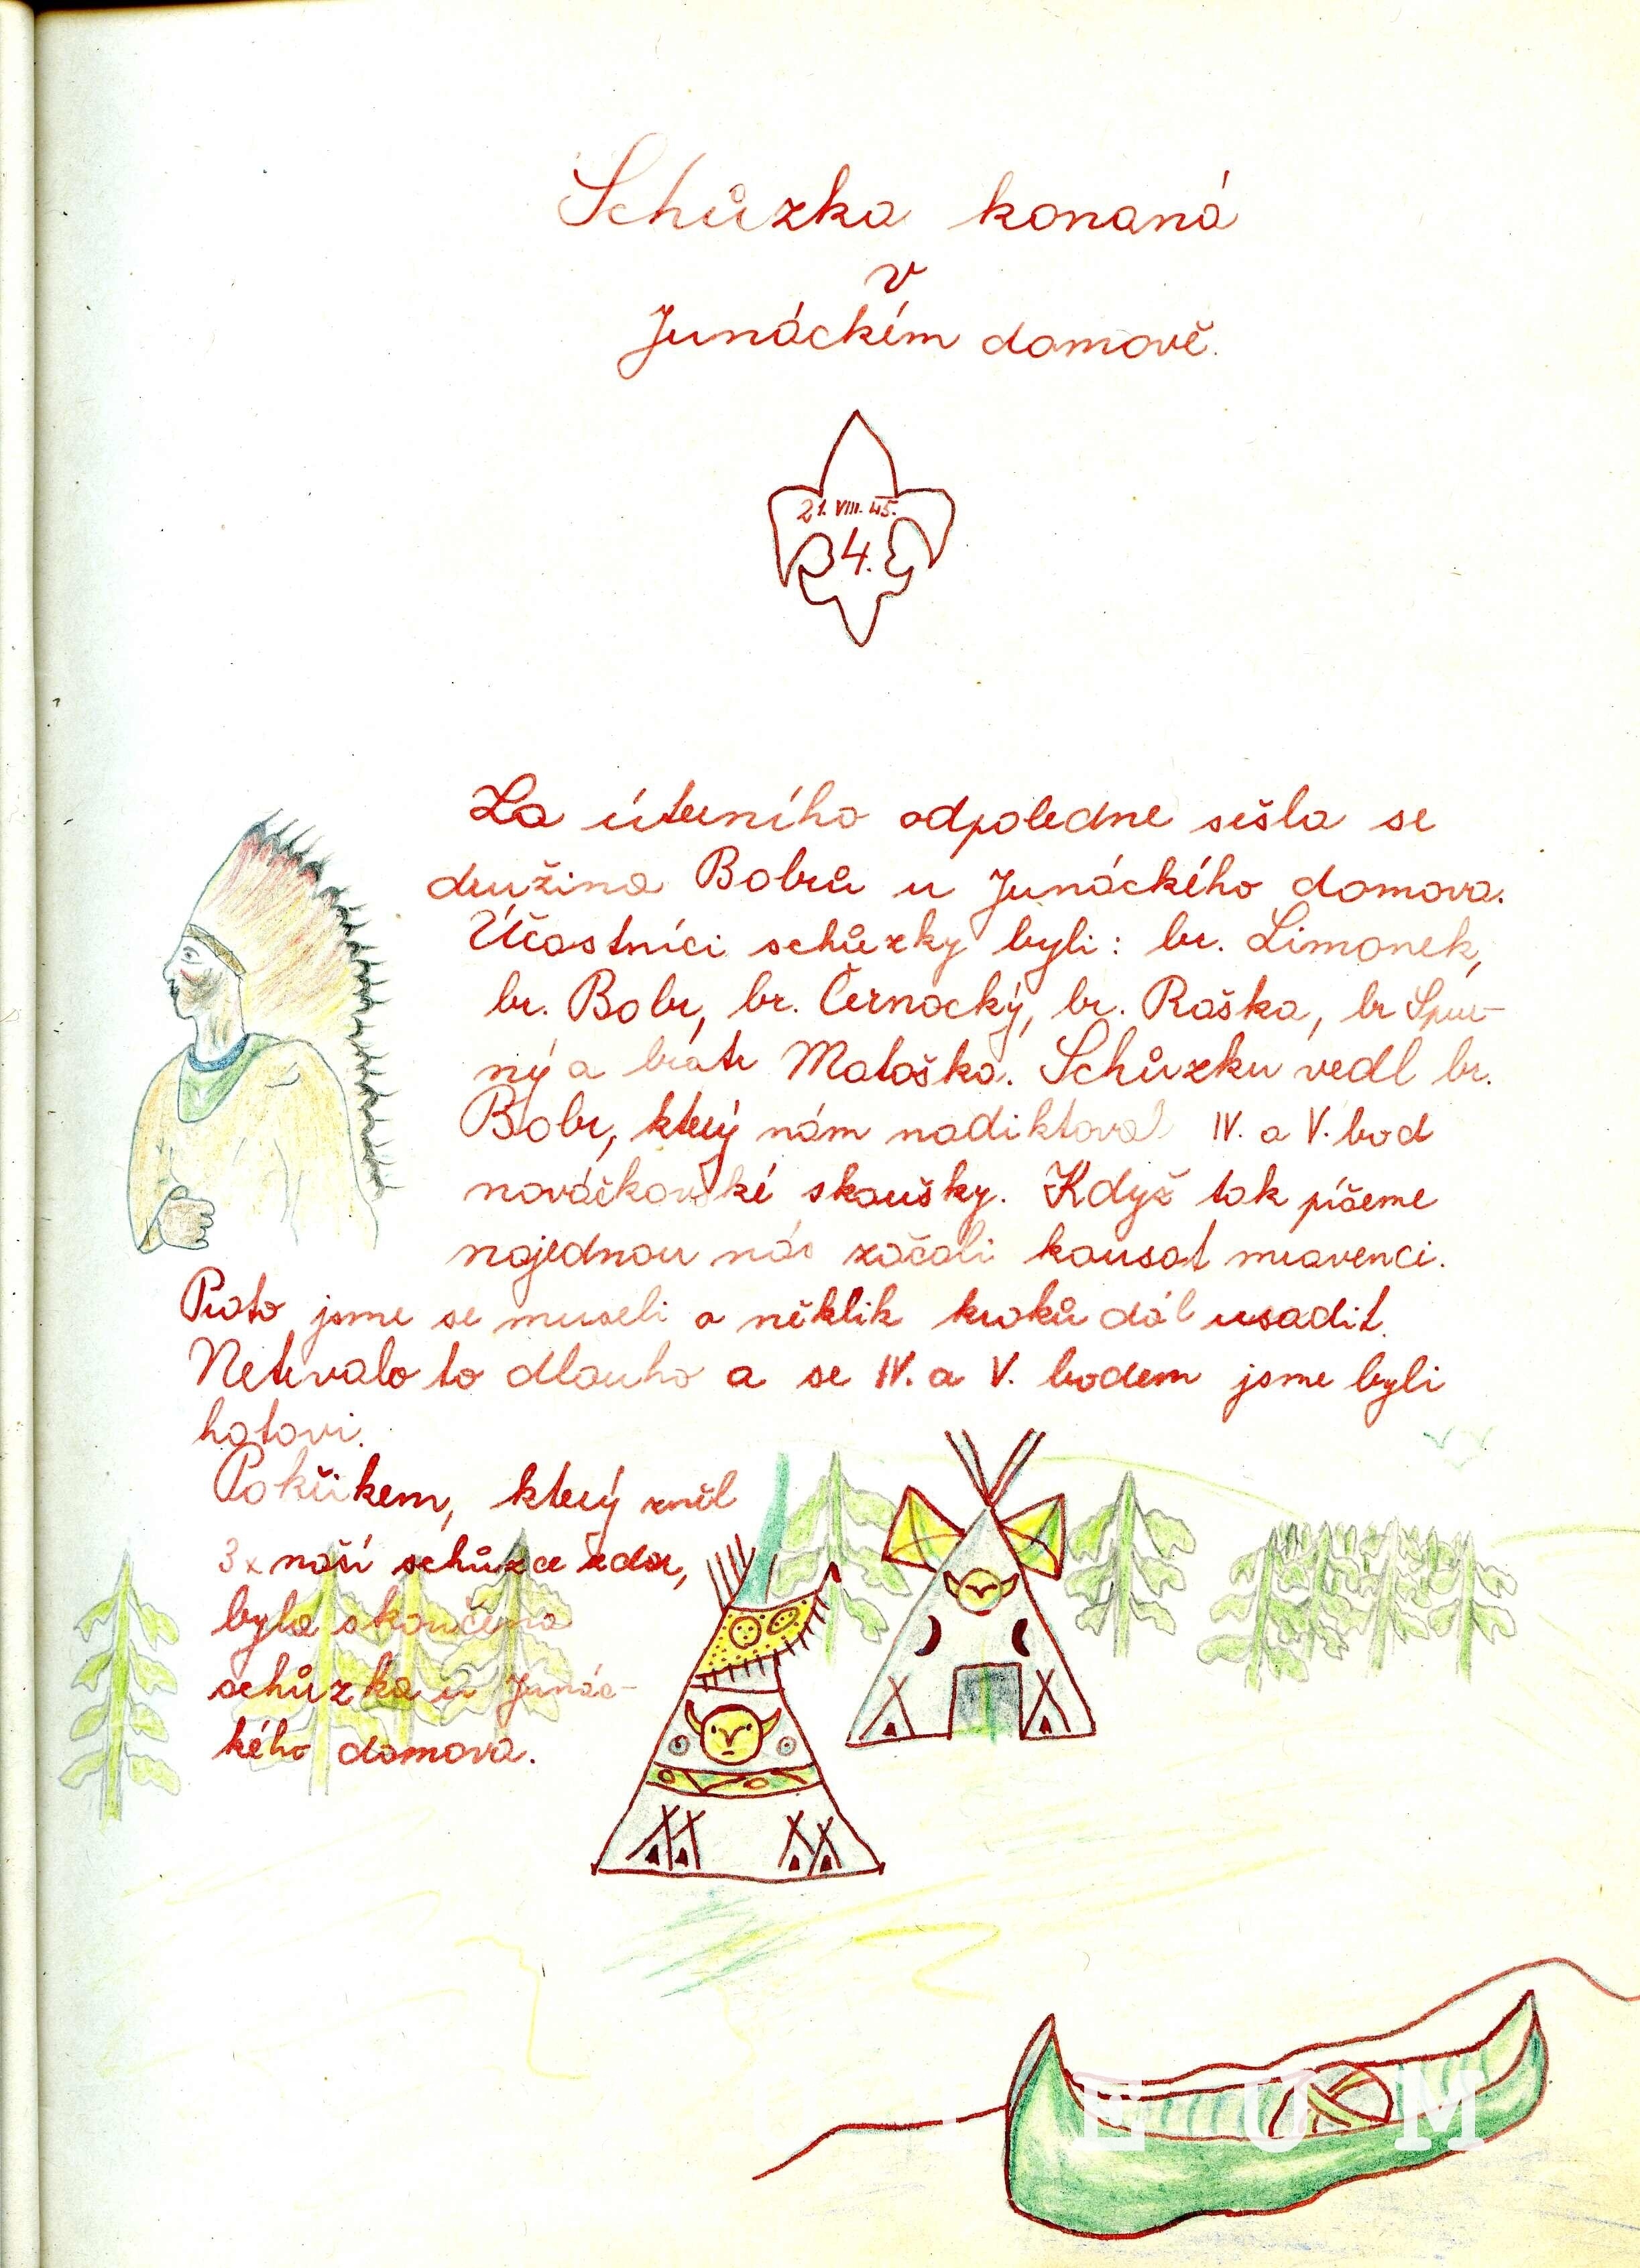 Schůzka konaná
v
Junáckém domově.
21. VIII. 45.
4.
Za úterního odpoledne sešla se
družina Bobrů u Junáckého domova.
Účastníci schůzky byli: br. Limonek,
br. Bobr, br. Černocký, br. Raška, br Spur-
ný a bratr Matoška. Schůzku vedl br.
Bobr, který nám nadiktoval IV. a V. bod
nováčkovské skoušky. Když tak píšeme
najednou nás začali kousat mravenci.
Proto jsme se museli o něklik kroků dál usadit.
Netrvalo to dlouho a se IV. a V. bodem jsme byli
hotovi.
Pokřikem, který zněl
3x naší schůzce zdar,
byla skončena
schůzka u Junác-
kého domova.
EUM